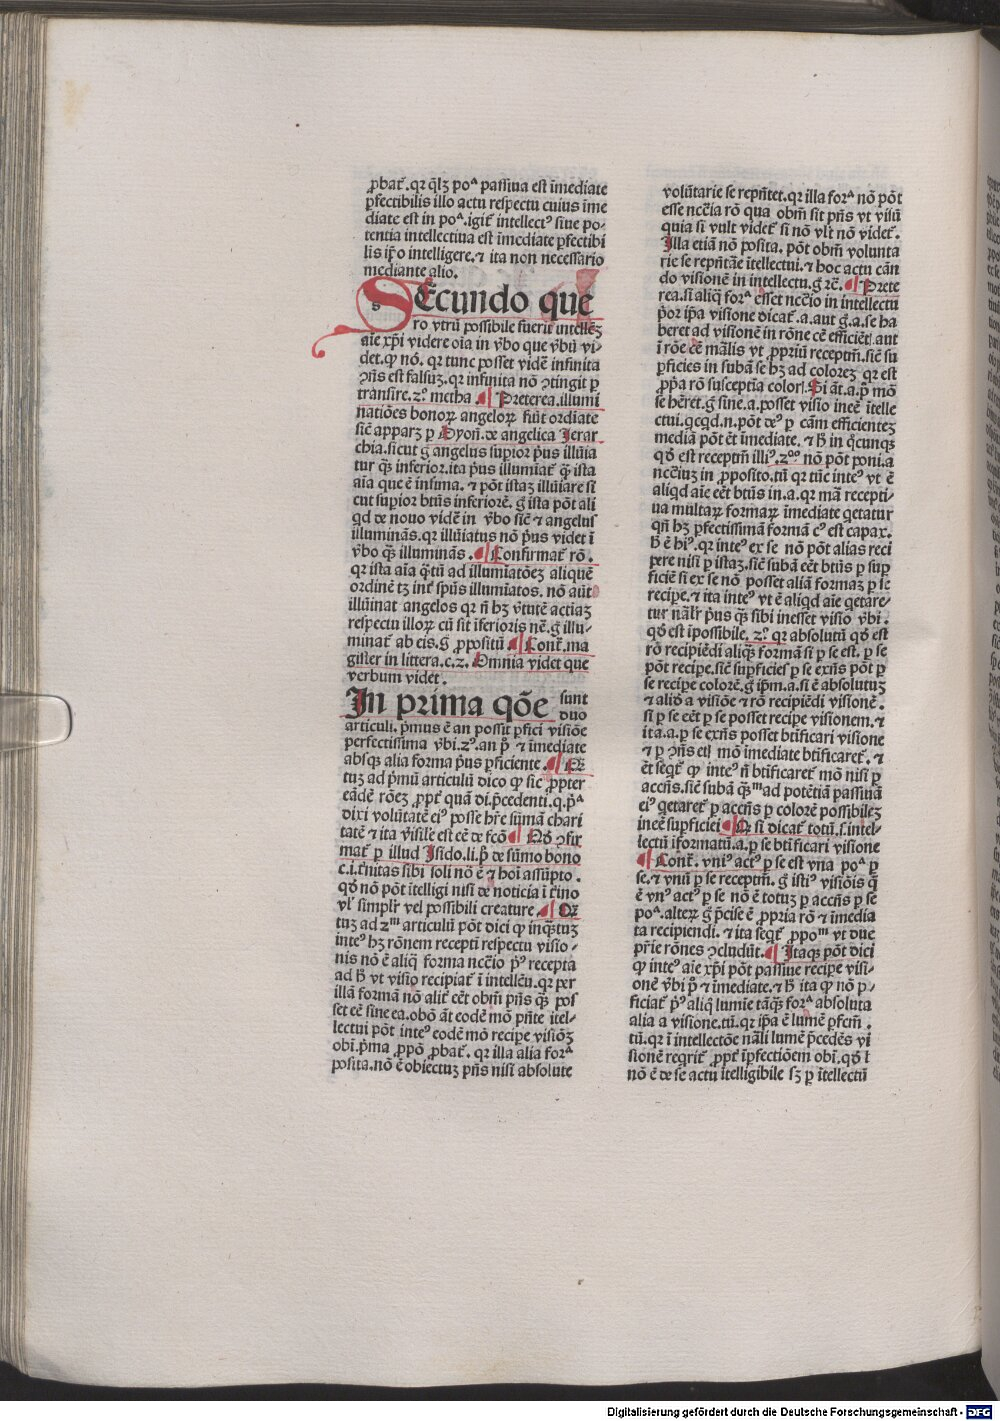 ꝓbat̄. qꝛ q̄lꝫ poᵃ passiua est īmediate
ꝑfectibilis illo actu respectu cuius īme
diate est in poᵃ. igit̄ intellectꝰ siue po-
tentia intellectiua est īmediate ꝑfectibi
lis ip̄o intelligere. ⁊ ita non necessario
mediante alio.
SEcundo que
ro vtrū possibile fuerit intellēꝫ
aīe xp̄i videre oīa in v̄bo que v̄bū vi-
det. ꝙ nō. qꝛ tunc posset vidē infinita
ꝯn̄s est falsuꝫ. qꝛ infinita nō ꝯtingit ꝑ
transire. 2º. metha. Preterea. illumi
natiōes bonoꝝ angeloꝝ fiūt ordīate
sic̄ apparꝫ ꝑ Dyoñ. de angelica Jerar
chia. sicut g̊ angelus suꝑior pꝰus illūīa
tur qꝫ inferior. ita pꝰus illumīat̄ qꝫ ista
aīa que ē infima. ⁊ pōt istaꝫ illūīare si
cut suꝑior btūs inferiorē. g̊ ista pōt ali
qd de nouo vidē in v̄bo sic̄ ⁊ angelus
illuminās. qꝛ illūīatus nō pꝰus videt ī
v̄bo qꝫ illuminās. Confirmat̄ rō.
qꝛ ista aīa q̄tū ad illumīatōeꝫ aliquē
ordinē tꝫ int̄ spūs illumīatos. nō aūt
illūinat angelos qꝛ n̄ hꝫ v̄tutē actiaꝫ
respectu illoꝝ cū sit īferioris nē. g̊ illu-
minat̄ ab eis. g̊ ꝓpositū Cont̄. ma
gister in littera. c. 2. Omnia videt que
verbum videt.
In prima qōe sunt
duo
articuli. pͥmus ē an possit ꝑfici visiōe
perfectissima v̄bi. 2ꝰ. an pͥ ⁊ īmediate
absqꝫ alia forma pꝰus ꝑficiente. Qꝫ
tuꝫ ad pͥmū articulū dico ꝙ sic ꝓpter
eādē rōeꝫ ꝓpt̄ quā di. p̄cedenti. q. pᵃ
dixi volūtatē eiꝰ posse hr̄e sūmā chari
tatē ⁊ ita v̄sile est cē de fcō Qḋ ꝯfir
mat̄ ꝑ illud Isido. li. pͥ de sūmo bono
c. i. tͥnitas sibi soli nō ē ⁊ hoī assūpto.
qḋ nō pōt itelligi nisi de noticia ī tͥno
vl̓ simplr̄ vel possibili creature. Qꝫ
tuꝫ ad 2ᵐ articulū pōt dici ꝙ inqꝫtuꝫ
inteꝰ hꝫ rōnem receptī respectu visio-
nis nō ē aliq̄ forma nccīo pꝰ recepta
ad h̄ vt visio recipiat̄ ī intellēu. qꝛ per
illā formā nō alit̄ eēt obm̄ pn̄s qꝫ pos
set eē sine ea. obō āt eodē mō pn̄te itel-
lectui pōt inteꝰ eodē mō recipe visiōꝫ
obi. pͥma ꝓpō ꝓbat̄. qꝛ illa alia forᵃ
posita. nō ē obiectuꝫ pn̄s nisi absolute
volūtarie se repn̄tet. qꝛ illa forᵃ nō pōt
esse nccīa rō qua obm̄ sit pn̄s vt visū
quia si vult videt̄ si nō vlt nō videt̄.
Illa etiā nō posita. pōt obm̄ volunta
rie se repn̄tāe ītellectui. ⁊ hoc actu cān
do visionē in intellectu. g̊ rē. Prete
rea. si aliq̄ forᵃ esset nccīo in intellectu
pͥor ip̄a visione dicat̄. a. aut g̊. a. se ha
beret ad visionē in rōne cē efficiēt̄ aut
ī rōe cē mālis vt ꝓpriū receptm̄. sic̄ su
ꝑficies in subā se hꝫ ad coloreꝫ qꝛ est
ꝓpͥa rō susceptīa coloꝝ. Si āt. a. pͥ mō
se hēret. g̊ sine. a. posset visio ineē ītelle
ctui. qcqd. n. pōt deꝰ ꝑ cām efficienteꝫ
mediā pōt ēt īmediate. ⁊ h̄ in qͥcunqꝫ
qḋ est receptm̄ illiꝰ. 2ºº nō pōt poni. a
ncc̄ius in ꝓposito. tū qꝛ tūc inteꝰ vt ē
aliqd aīe eēt btūs in. a. qꝛ mā recepti-
ua multaꝝ formaꝝ īmediate qetatur
qn̄ hꝫ ꝑfectissimā formā cꝰ est capax.
h̄ ē hiꝰ. qꝛ inteꝰ ex se nō pōt alias reci
pere nisi ꝑ istaꝫ. sic̄ subā eēt btūs ꝑ suꝑ
ficiē si ex se nō posset aliā formaꝫ ꝑ se
recipe. ⁊ ita inteꝰ vt ē aliqd aīe qetare-
tur nālr̄ pꝰus qꝫ sibi inesset visio v̄bi.
qḋ est īpossibile. 2º. qꝛ absolutū qḋ est
rō recipiēdi aliqꝫ formā si ꝑ se est. ꝑ se
pōt recipe. sic̄ suꝑficies ꝑ se exn̄s pōt ꝑ
se recipe colorē. g̊ ip̄m. a. si ē absolutuꝫ
⁊ aliḋ a visiōe ⁊ rō recipiēdi visionē.
si ꝑ se eēt ꝑ se posset recipe visionem. ⁊
ita. a. ꝑ se exn̄s posset btīficari visione
⁊ ꝑ ꝯn̄s et̓ mō īmediate btīficaret̄. ⁊
ēt seqt̄ ꝙ inteꝰ n̄ btīficaret̄ mō nisi ꝑ
accn̄s. sic̄ subā qꝫᵐ ad potētiā passiuā
eiꝰ qetaret̄ ꝑ accn̄s ꝑ colorē possibileꝫ
ineē suꝑficiei Q̄ si dicat̄ totū. s. intel-
lectū iformatū. a. ꝑ se btīficari visione
Cont̄. vniꝰ actꝰ ꝑ se est vna poᵃ ꝑ
se. ⁊ vnū ꝑ se receptm̄. g̊ istiꝰ visiōis q̄
ē vnꝰ actꝰ ꝑ se nō ē totuꝫ ꝑ accn̄s ꝑ se
poᵃ. alteꝝ g̊ p̄cise ē ꝓpria rō ⁊ īmedia
ta recipiendi. ⁊ ita seqt̄ ꝓpoᵐ vt due
pͥrie rōnes ꝯcludūt. Itaqꝫ pōt dici
ꝙ inteꝰ aīe xp̄i pōt passiue recipe visi-
onē v̄bi pͥ ⁊ īmediate. ⁊ h̄ ita ꝙ nō ꝑ-
ficiat̄ pꝰ aliq̄ lumīe tāqꝫ forᵃ absoluta
alia a visione. tū. qꝛ ip̄a ē lumē ꝑfcm̄.
tū. qꝛ ī intellectōe nāli lumē p̄cedēs vi
sionē reqͥrit̄ ꝓpt̄ īꝑfectiōem obī. qḋ l̓
nō ē de se actu ītelligibile sꝫ ꝑ ītellectū
Digitalisierung gefördert durch die Deutsche Forschungsgemeinschaft - DFG